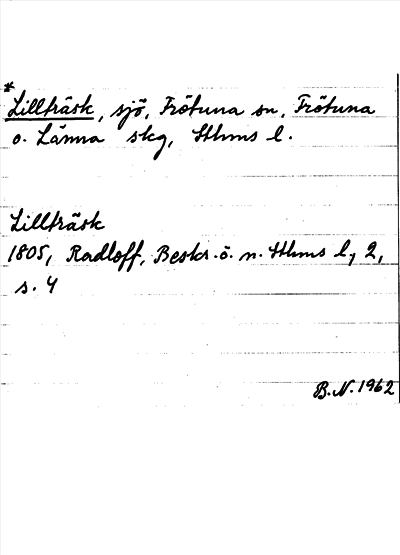 *
Lillträsk, sjö, Frötuna sn, Frötuna
o. Länna skg, Sthms l.
Lillträsk
1805, Radloff, Beskr. ö. n. Sthms l, 2,
s. 4
B.N. 1962